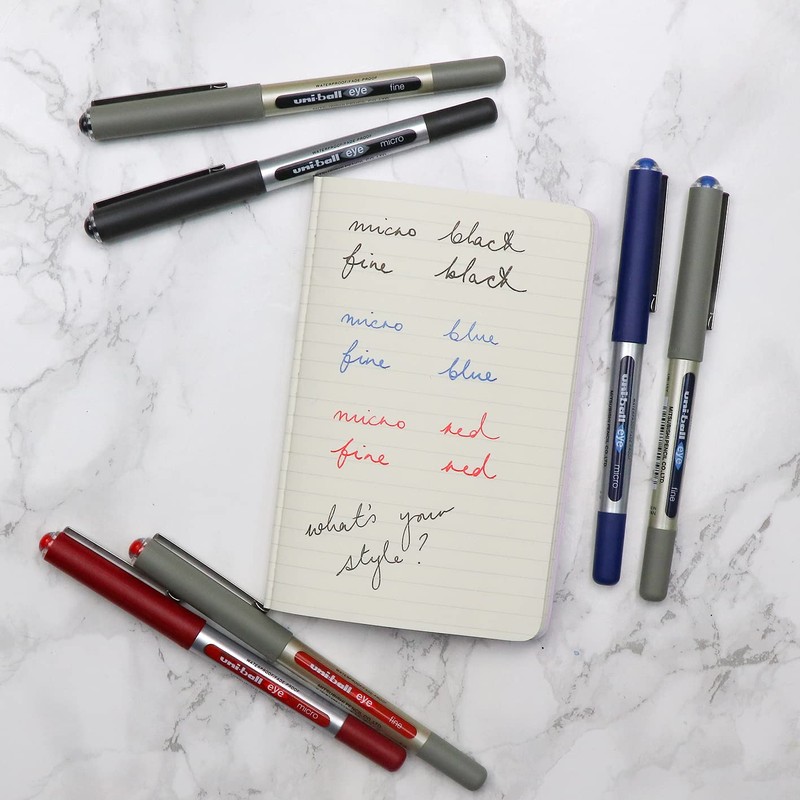 WATERPROOF/FADE PROOF
uni-ball eye fine
WATERPROOF/FADE PROOF
uni-ball eye micro
micro black
fine black
micro blue
fine blue
micro red
fine red
what's your
style?
uni-ball eye micro
uni-ball eye fine
MITSUBISHI PENCIL CO. LTD.
uni-ball eye micro
uni-ball eye fine